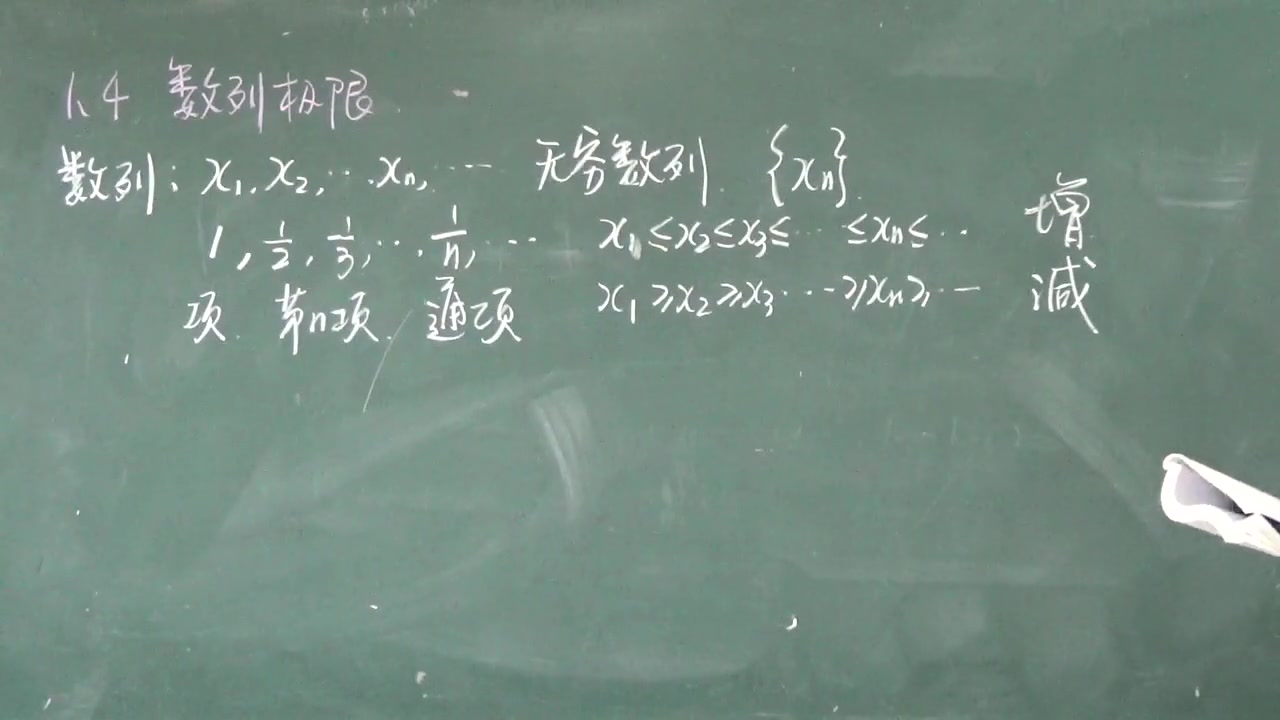 1.4 数列极限
数列: x₁, x₂, … xₙ, … 无穷数列. {xₙ}.
1, 1/2, 1/3, …, 1/n, … x₁ ≤ x₂ ≤ x₃ ≤ … ≤ xₙ ≤ … 增
项. 第n项. 通项 x₁ ≥ x₂ ≥ x₃ … ≥ xₙ ≥ … 减